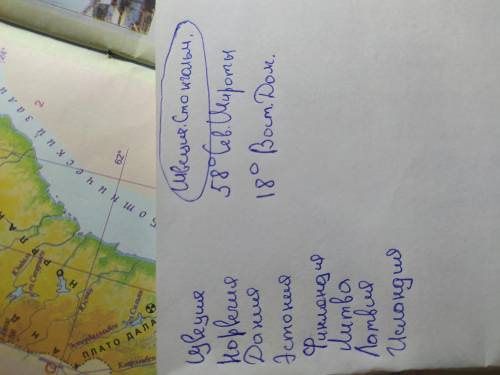 Швеция. Стокгольм.
58° Сев. Широты
18° Вост. Дол.
Швеция
Норвегия
Дания
Эстония
Финляндия
Литва
Латвия
Исландия
2
62°
Ботнический зали
ПЛАТО ДАЛА
НОР